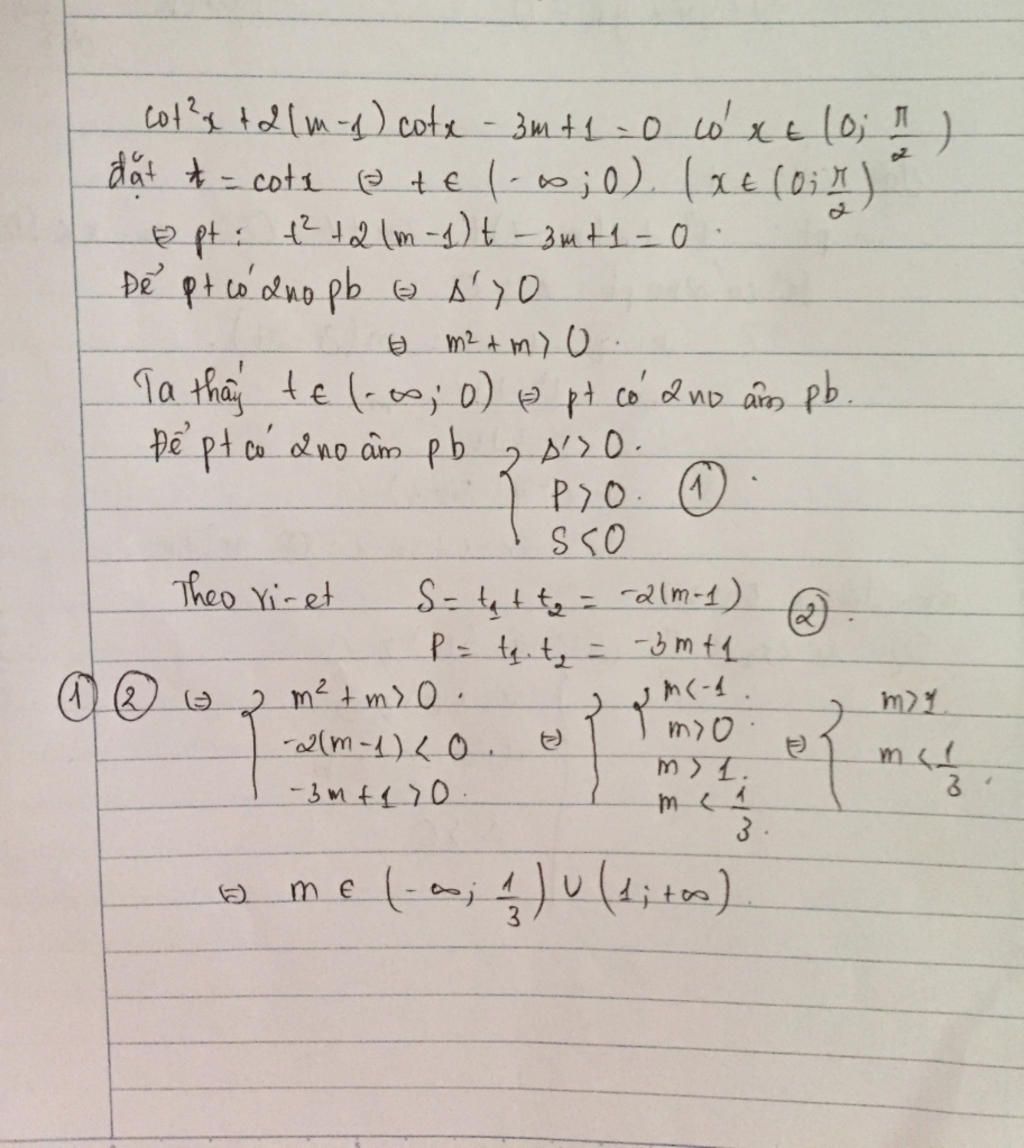 cot²x + 2(m-1) cotx - 3m+1 = 0 có x ∈ (0; π/2)
đặt t = cotx ⇔ t ∈ (-∞; 0). (x ∈ (0; π/2)
⇔ pt: t² + 2(m-1)t - 3m+1 = 0.
Để pt có 2no pb ⇔ Δ' > 0
⇔ m² + m > 0.
Ta thấy t ∈ (-∞; 0) ⇔ pt có 2no âm pb.
Để pt có 2no âm pb { Δ' > 0.
P > 0. ①
S < 0
Theo vi-et S = t₁ + t₂ = -2(m-1) ②.
P = t₁.t₂ = -3m+1
① ② ⇔ { m² + m > 0. ⇔ { { m < -1. ⇔ { m > 1
-2(m-1) < 0. m > 0 m < 1/3.
-3m+1 > 0. m > 1.
m < 1/3.
⇔ m ∈ (-∞; 1/3) ∪ (1; +∞).